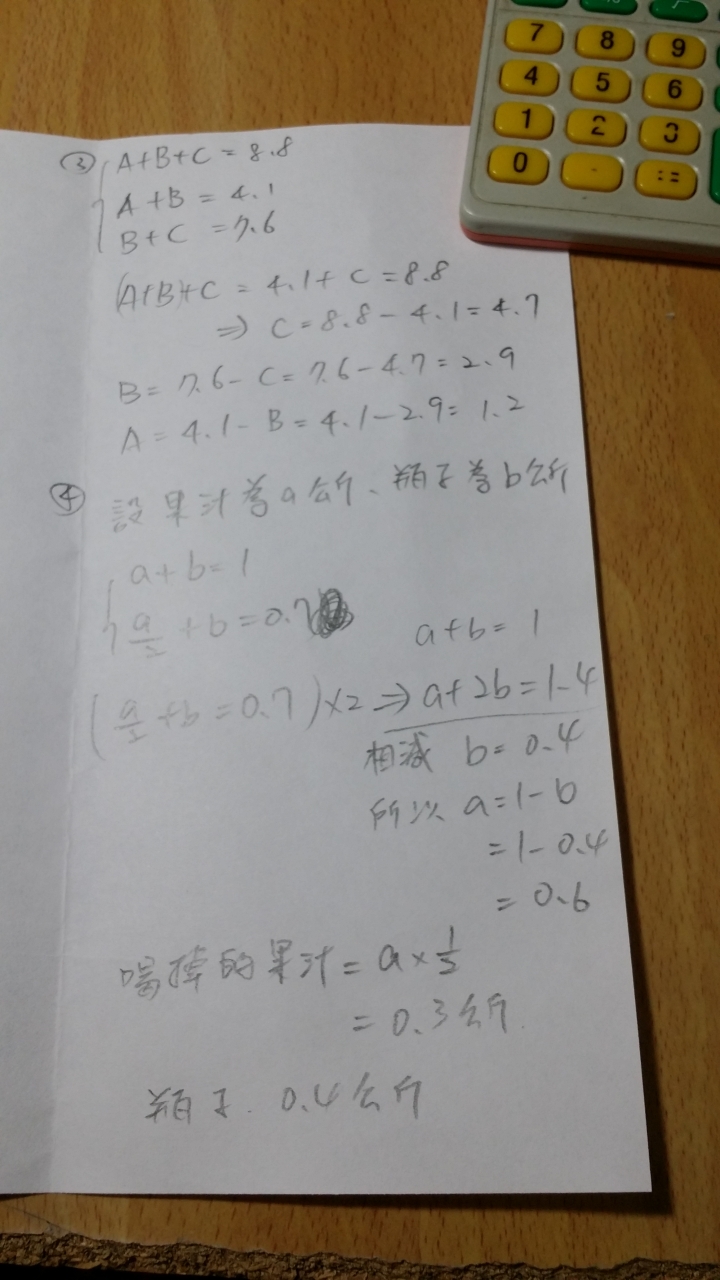 7 8 9
4 5 6
1 2 3
0 · :=
③ A+B+C = 8.8
A+B = 4.1
B+C = 7.6
(A+B)+C = 4.1+C = 8.8
⇒ C = 8.8-4.1 = 4.7
B = 7.6-C = 7.6-4.7 = 2.9
A = 4.1-B = 4.1-2.9 = 1.2
④ 設果汁為a公斤、瓶子為b公斤
a+b=1
a/2 +b=0.7
a+b=1
(a/2 +b=0.7)×2 ⇒ a+2b=1.4
相減 b=0.4
所以 a=1-b
=1-0.4
=0.6
喝掉的果汁=a×1/2
=0.3公斤.
瓶子. 0.4公斤